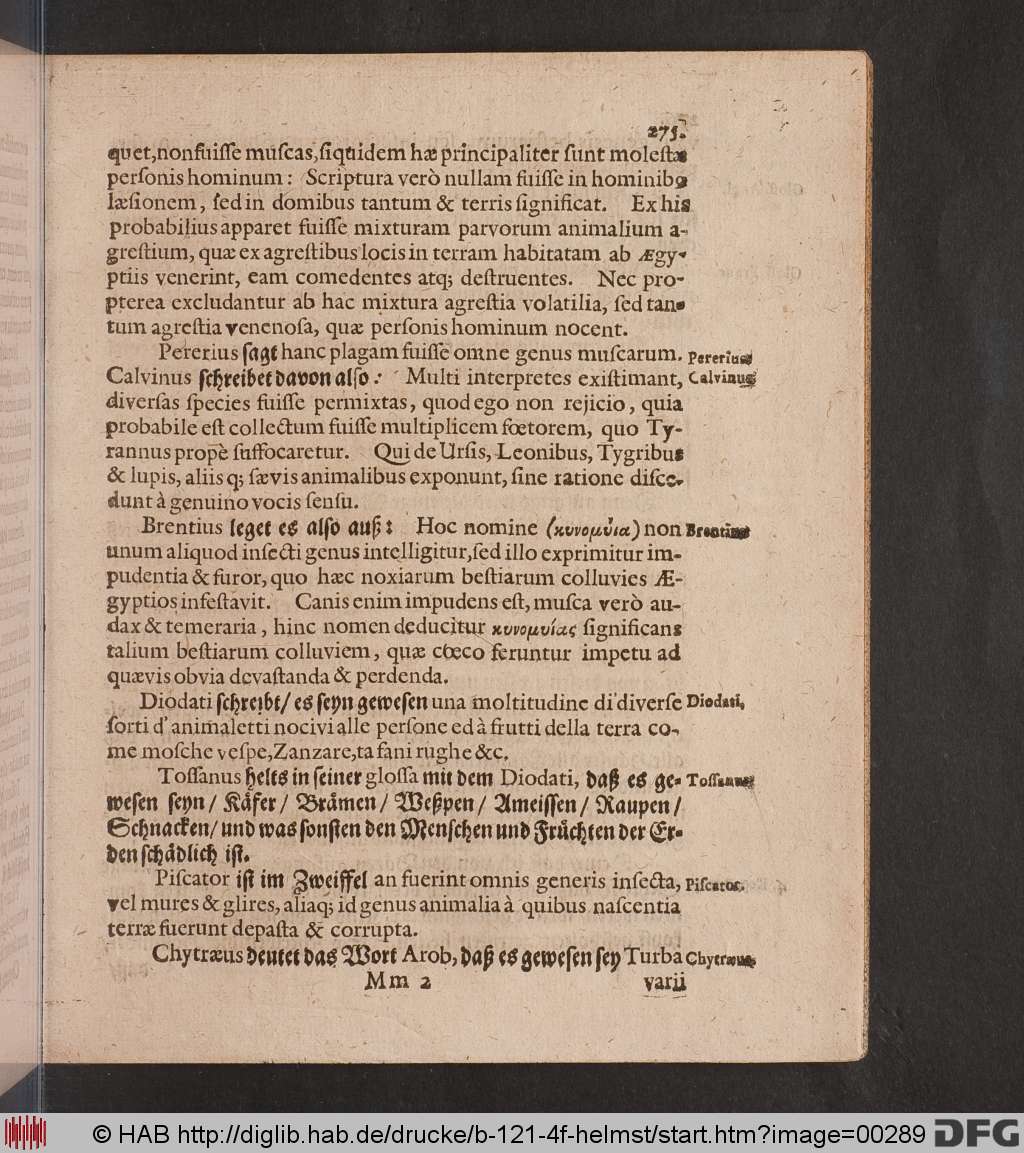 275.
quet,nonfuiſſe muſcas,ſiquidem hæ principaliter ſunt moleſtæ
perſonis hominum: Scriptura verò nullam fuiſſe in hominibꝰ
læſionem, ſed in domibus tantum & terris ſignificat. Ex his
probabilius apparet fuiſſe mixturam parvorum animalium a-
greſtium, quæ ex agreſtibus locis in terram habitatam ab Ægy-
ptiis venerint, eam comedentes atq; deſtruentes. Nec pro-
pterea excludantur ab hac mixtura agreſtia volatilia, ſed tan-
tum agreſtia venenoſa, quæ perſonis hominum nocent.
Pererius ſagt hanc plagam fuiſſe omne genus muſcarum. Pererius
Calvinus ſchreibet davon alſo: Multi interpretes exiſtimant, Calvinus
diverſas ſpecies fuiſſe permixtas, quod ego non rejicio, quia
probabile eſt collectum fuiſſe multiplicem fœtorem, quo Ty-
rannus propè ſuffocaretur. Qui de Urſis, Leonibus, Tygribus
& lupis, aliis q; ſævis animalibus exponunt, ſine ratione diſce-
dunt à genuino vocis ſenſu.
Brentius leget es alſo auß: Hoc nomine (κυνομῦια) non Brentius
unum aliquod inſecti genus intelligitur,ſed illo exprimitur im-
pudentia & furor, quo hæc noxiarum beſtiarum colluvies Æ-
gyptios infeſtavit. Canis enim impudens eſt, muſca verò au-
dax & temeraria, hinc nomen deducitur κυνομυίας ſignificans
talium beſtiarum colluviem, quæ cœco feruntur impetu ad
quævis obvia devaſtanda & perdenda.
Diodati ſchreibt/ es ſeyn geweſen una moltitudine di diverſe Diodati,
ſorti d' animaletti nocivi alle perſone ed à frutti della terra co-
me moſche veſpe,Zanzare,ta fani rughe &c.
Toſſanus helts in ſeiner gloſſa mit dem Diodati, daß es ge- Toſſanus
weſen ſeyn/ Käfer/ Brämen/ Weßpen/ Ameiſſen/ Raupen/
Schnacken/ und was ſonſten den Menſchen und Früchten der Er-
den ſchädlich iſt.
Piſcator iſt im Zweiffel an fuerint omnis generis inſecta, Piſcator.
vel mures & glires, aliaq; id genus animalia à quibus naſcentia
terræ fuerunt depaſta & corrupta.
Chytræus deutet das Wort Arob, daß es geweſen ſey Turba Chytræus,
Mm 2 varii
© HAB http://diglib.hab.de/drucke/b-121-4f-helmst/start.htm?image=00289 DFG